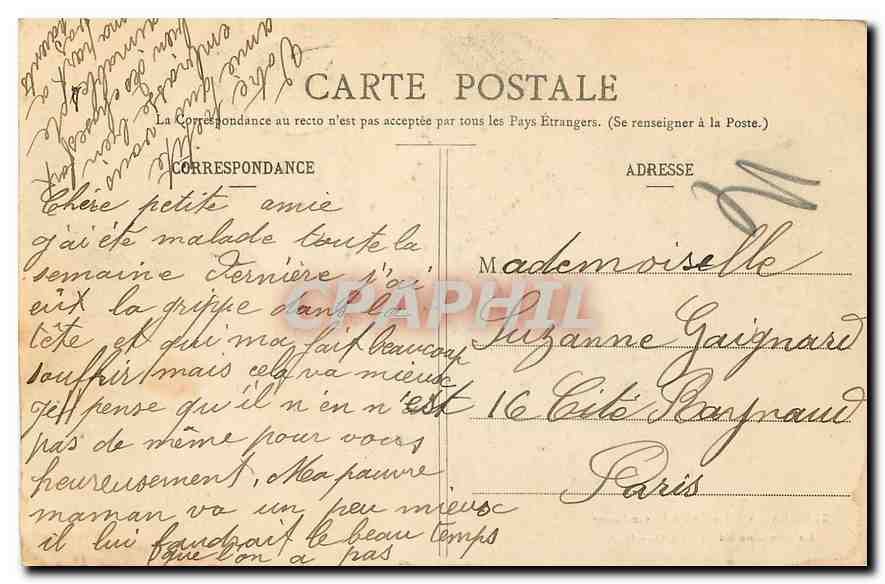 CARTE POSTALE
La Correspondance au recto n'est pas acceptée par tous les Pays Étrangers. (Se renseigner à la Poste.)
CORRESPONDANCE
Chère petite amie
j'ai été malade toute la
semaine dernière j'ai
eût la grippe dans la
tête et qui m'a fait beaucoup
souffrir mais cela va mieux
Je pense qu'il n'en n'est
pas de même pour vous
heureusement, Ma pauvre
maman va un peu mieux
il lui faudrait le beau temps
que l'on a pas
Votre petite
amie qui vous
embrasse bien
bien des choses
aimables de
ma part à
parents
ADRESSE
Mademoiselle
Suzanne Gaignard
16 Cité Raynaud
Paris
CPAPHIL